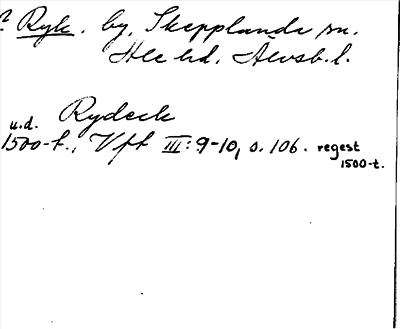 ? Ryk. by, Skepplanda sn.
Ale hd. Älvsb. l.
Rydeck
u.d.
1500-t., Vft III: 9-10, s. 106. regest
1500-t.